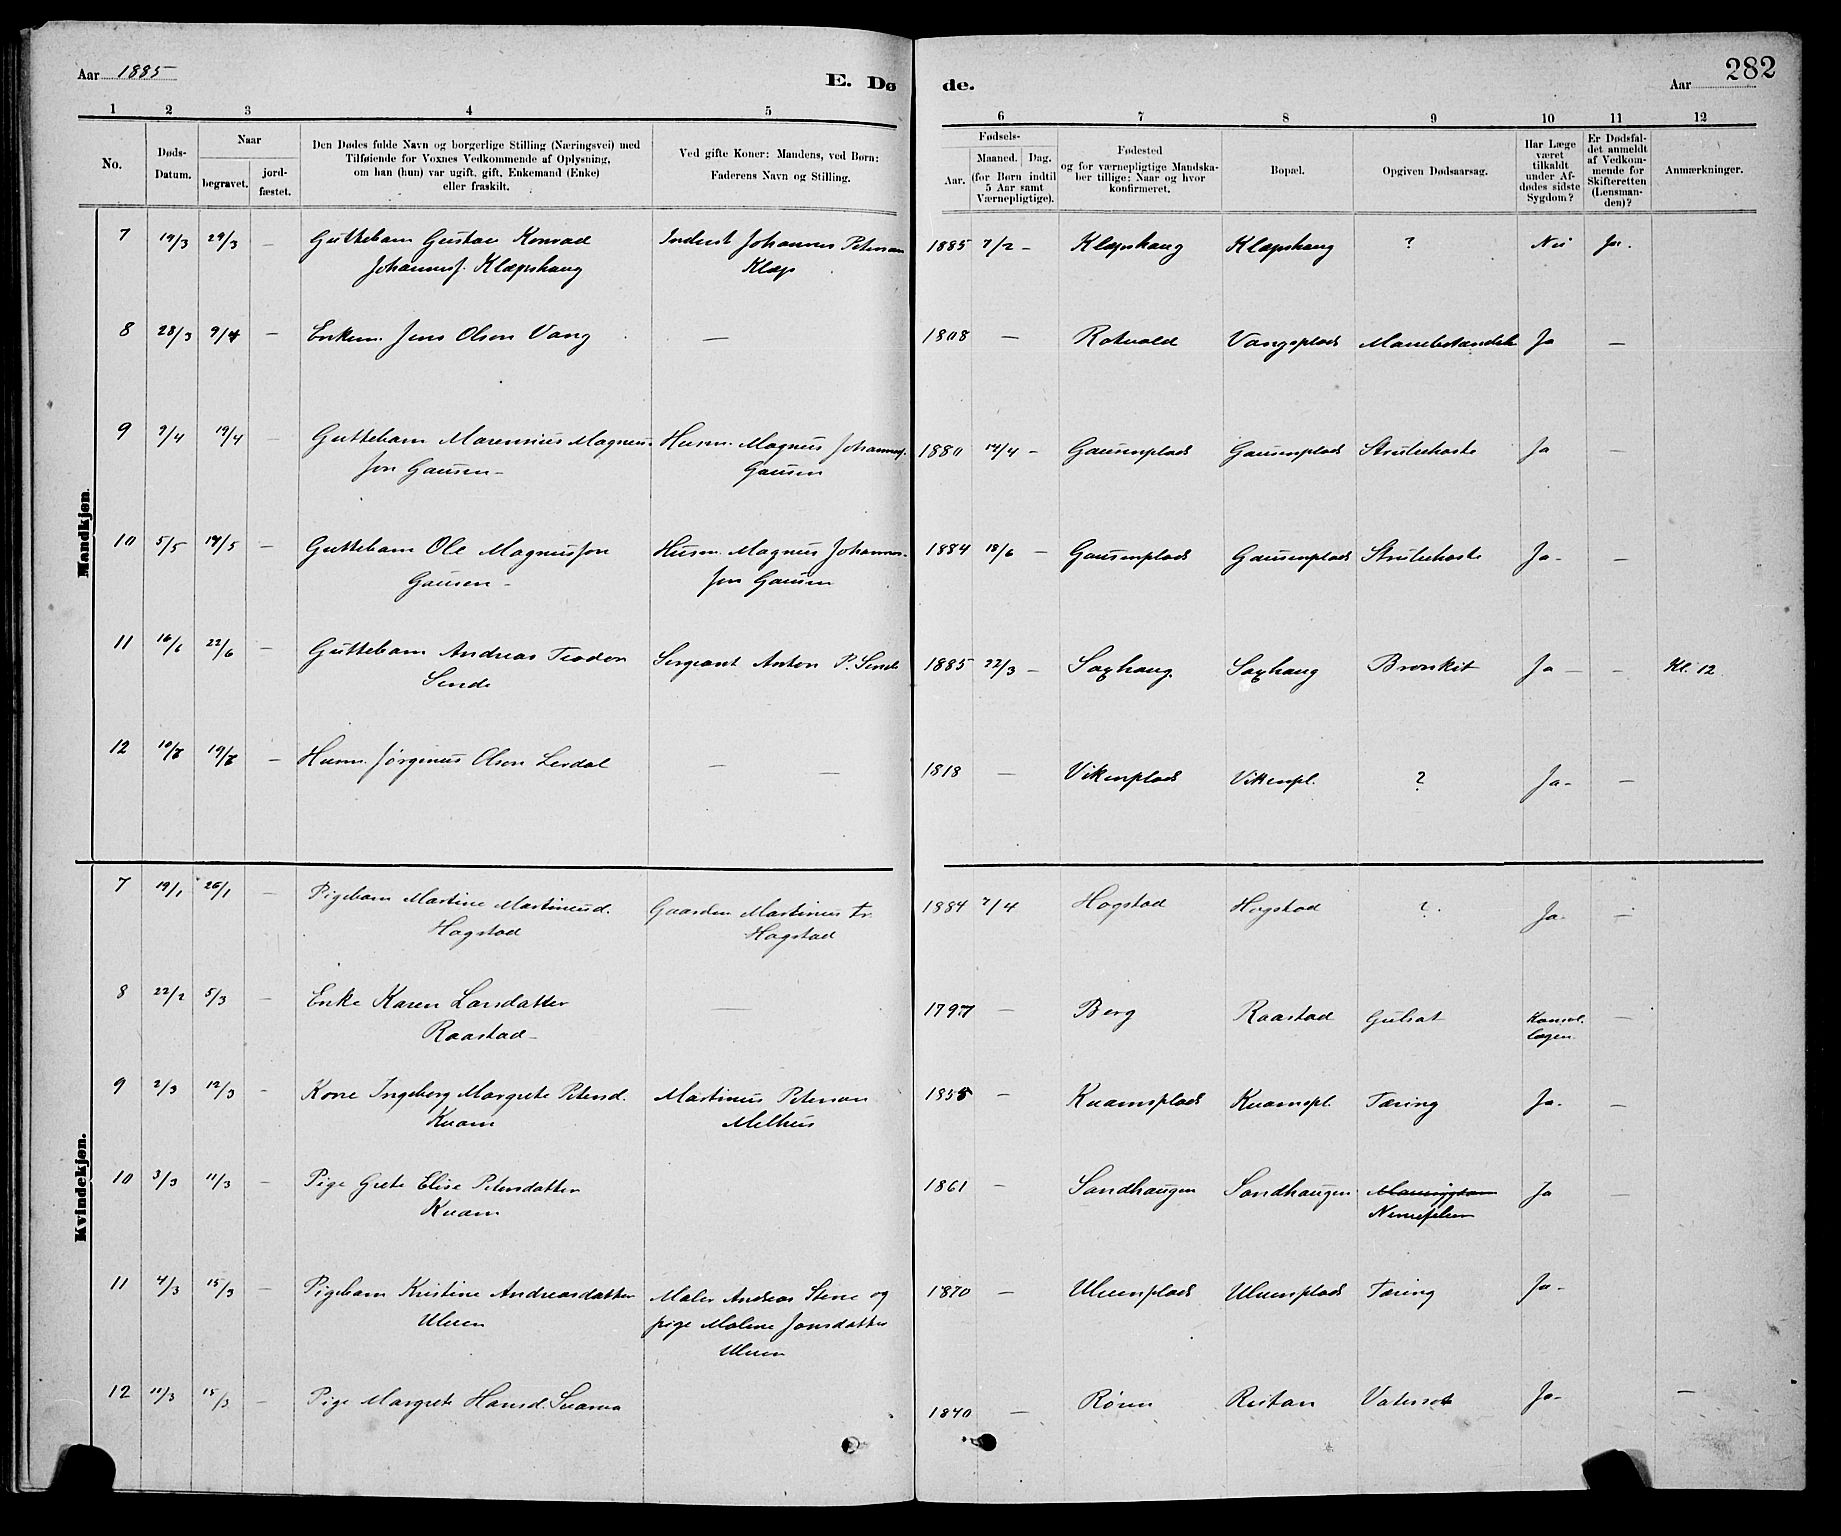 Aar 1885
E. Dø
de.
Aar
282
1 2 3 4 5 6 7 8 9 10 11 12
No.
Døds-
Datum.
Naar
begravet.
jord-
fæstet.
Den Dødes fulde Navn og borgerlige Stilling (Næringsvei) med
Tilføiende for Voxnes Vedkommende af Oplysning,
om han (hun) var ugift, gift, Enkemand (Enke)
eller fraskilt.
Ved gifte Koner: Mandens, ved Børn:
Faderens Navn og Stilling.
Fødsels-
Aar.
Maaned. Dag.
(for Børn indtil
5 Aar samt
Værnepligtige).
Fødested
og for værnepligtige Mandska-
ber tillige: Naar og hvor
konfirmeret.
Bopæl.
Opgiven Dødsaarsag.
Har Læge
været
tilkaldt
under Af-
dødes sidste
Sygdom?
Er Dødsfal-
det anmeldt
af Vedkom-
mende for
Skifteretten
(Lensman-
den)?
Anmærkninger.
Mandkjøn.
7 19/3 29/3 — Guttebarn Gustav Konrad Inderst Johannes Peterson 1885 7/2 - Klæpshaug Klæpshaug ? Nei Ja.
Johannesf. Klæpshaug Klæp
8 28/3 9/4 — Enkem. Jens Olsen Vang — 1808 — Rotvold Vangsplads Ja —
9 9/4 19/4 — Guttebarn Marennius Magnus- Husm. Magnus Johannesf. 1880 14/4 - Gausenplads Gausenplads Strubehoste Ja
son Gausen - Gausen
10 5/5 14/5 — Guttebarn Ole Magnusson Husm. Magnus Johannes- 1884 18/6 — Gausenplads Gausenplads Strubehoste Ja- —
Gausen - son Gausen
11 16/6 22/6 — Guttebarn Andreas Teodor Sergeant Anton P. Sende 1885 22/3 - Saxhaug. Saxhaug Bronkit Ja — — Kl. 12
Sende
12 10/8 19/8 — Husm. Jørginus Olsen Lerdal — — 1818 — Vikenplads Vikenpl. ? Ja- —
Kvindekjøn.
7 19/1 26/1 — Pigebarn Martine Martinusd. Gaardm. Martinus Fr. 1884 7/4 Hogstad Hogstad ? Ja- —
Hogstad Hogstad
8 22/2 5/3 — Enke Karen Larsdatter — 1797 — Berg Raastad Gulsot —
Raastad -
9 2/3 12/3 - Kone Ingeborg Margrete Petersd. Martinus Peterson 1855 — Kvamsplads Kvamspl. Tæring Ja- —
Kvam Melhus
10 3/3 11/3 — Pige Grete Elise Petersdatter 1861 — Sandhaugen Sandhaugen Ja —
Kvam Nervefeber
11 4/3 15/3 — Pigebarn Kristine Andreasdatter Maler Andreas Stene og 1870 — Ulvenplads Ulvenplads Tæring Ja-
Ulven pige Malene Jonsdatter
Ulven
12 11/3 15/3 — Pige Margrete Hansd. Svarva 1840 — Røren Ristan Vatersot Ja- —